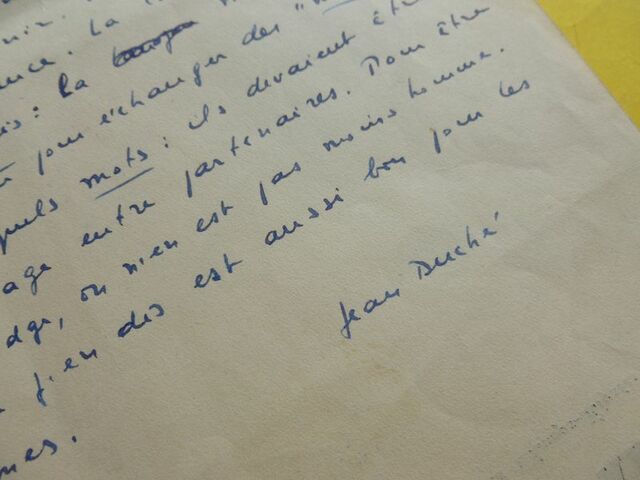 La
is : La
pour échanger des "
quels mots : ils devaient êtr
age entre partenaires. Pour être
dge, on n'en est pas moins homme.
j'en dis est aussi bon pour les
mes.
Jean Duché